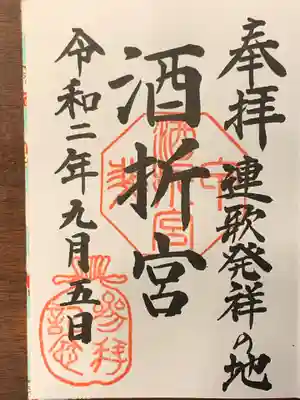 奉拝 連歌発祥の地
酒折宮
令和二年九月五日
参拝